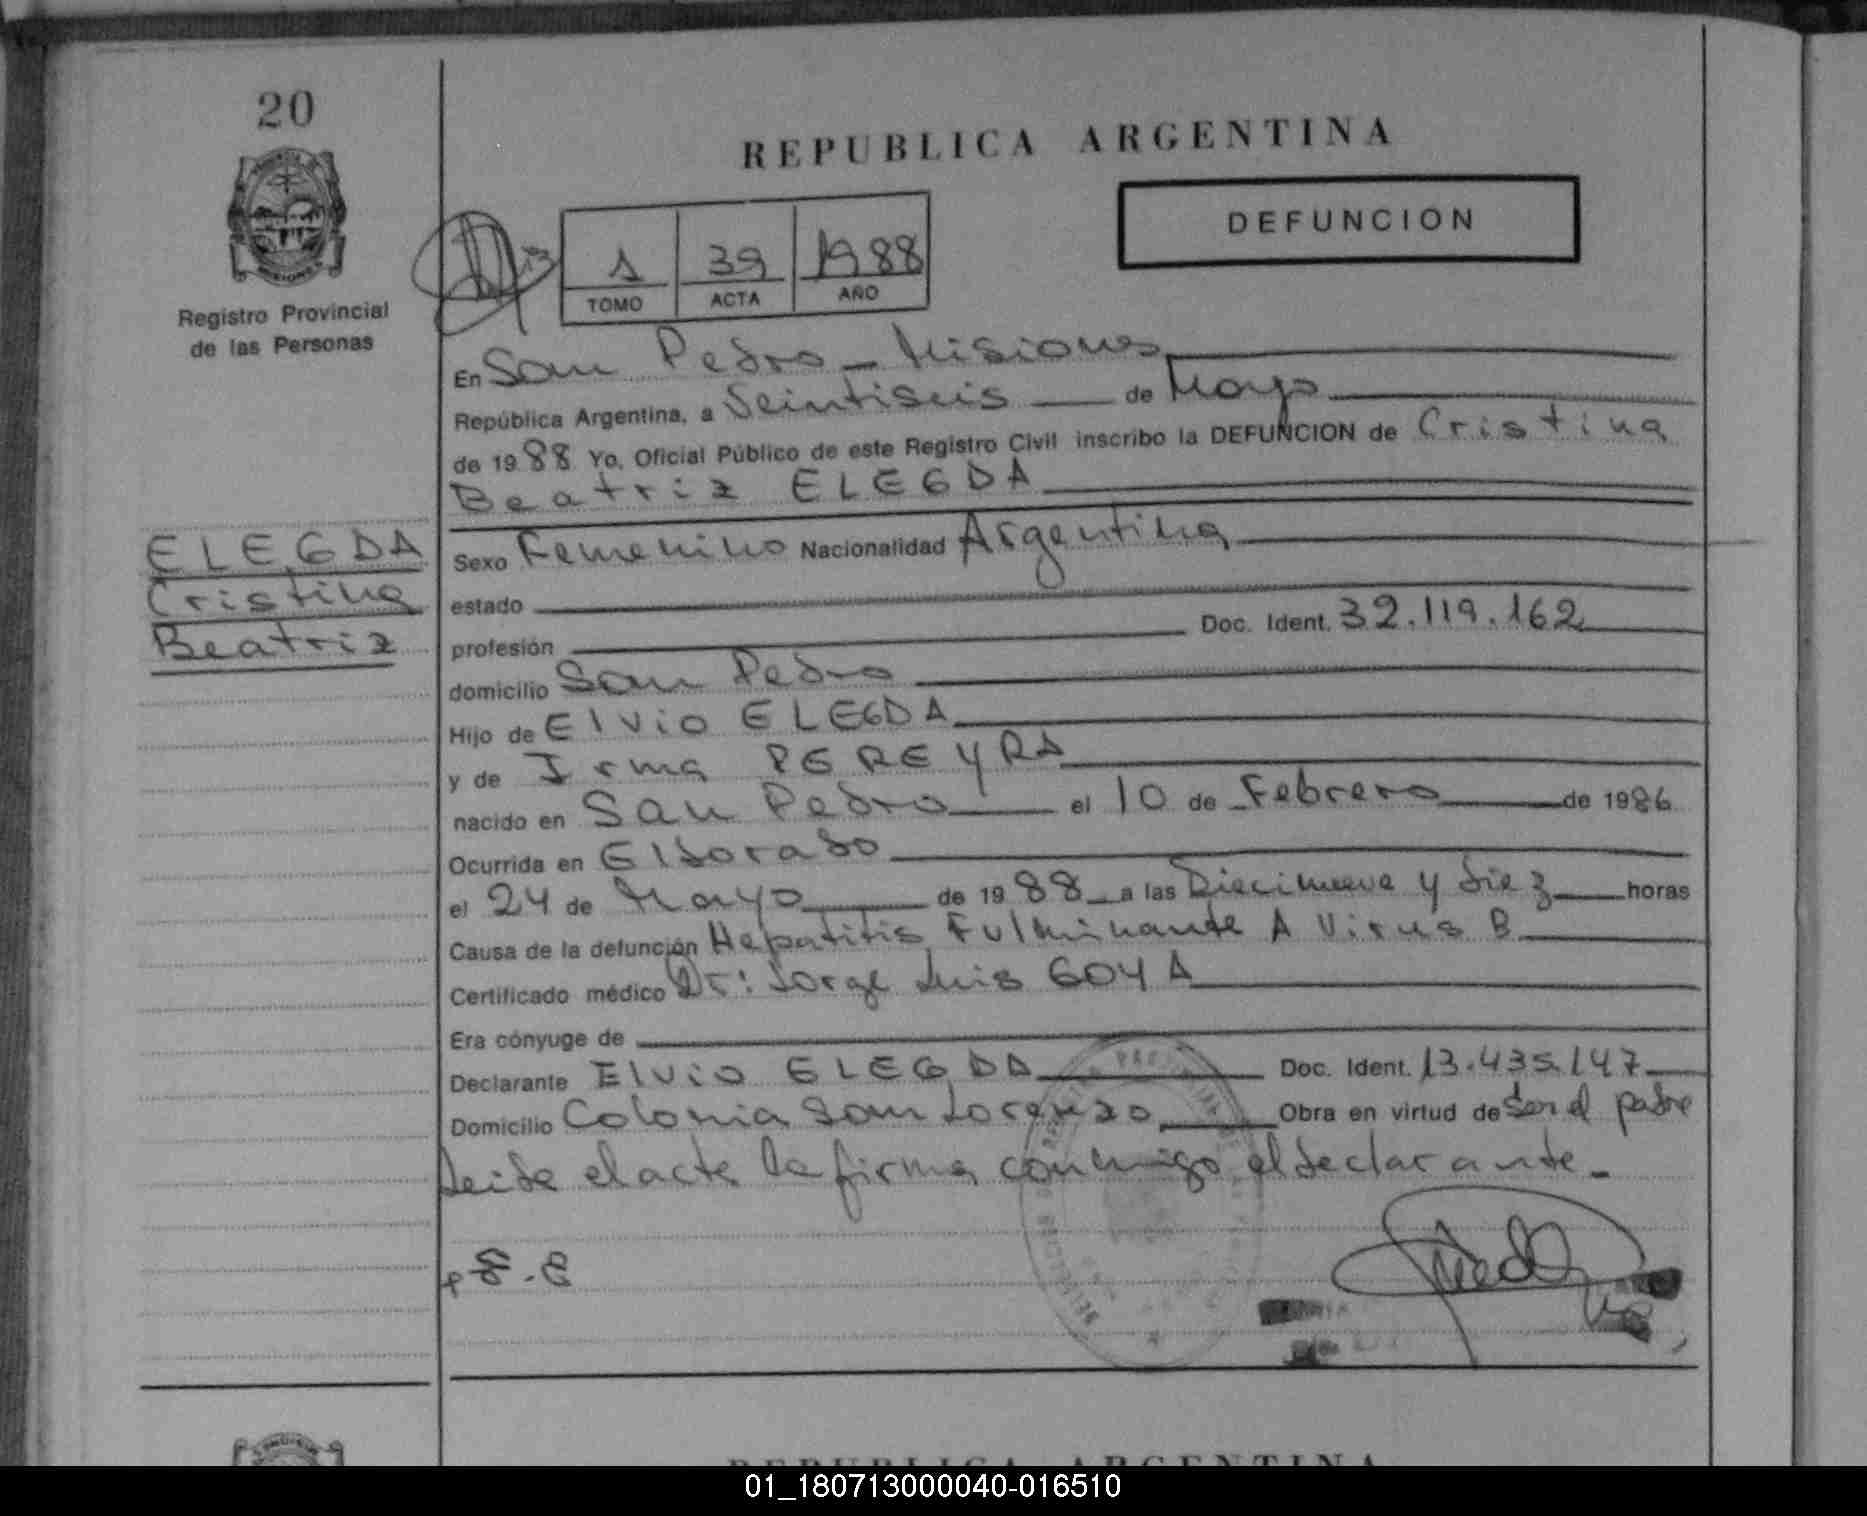 20
REPUBLICA ARGENTINA
DEFUNCION
1 39 1988
TOMO ACTA AÑO
Registro Provincial
de las Personas
En San Pedro - Misiones
República Argentina, a Veintiseis de Mayo
de 1988 Yo, Oficial Público de este Registro Civil inscribo la DEFUNCION de Cristina
Beatriz ELEGDA
ELEGDA
Cristina
Beatriz
Sexo Femenino Nacionalidad Argentina
estado
profesión Doc. Ident. 32.119.162
domicilio San Pedro
Hijo de Elvio ELEGDA
y de Irma PEREYRA
nacido en San Pedro el 10 de Febrero de 1986
Ocurrida en Eldorado
el 24 de Mayo de 1988 a las Diecinueve y diez horas
Causa de la defunción Hepatitis Fulminante A Virus B
Certificado médico Dr: Jorge Luis GOYA
Era cónyuge de
Declarante Elvio ELEGDA Doc. Ident. 13.435.147
Domicilio Colonia San Lorenzo Obra en virtud de Ser el padre
Leida el acta la firma conmigo el declarante.-
REPUBLICA ARGENTINA
01_180713000040-016510